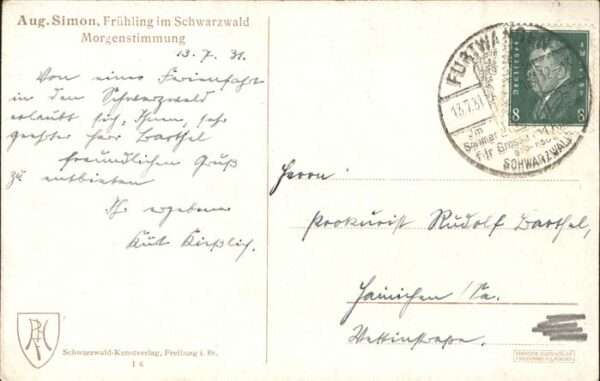 Aug. Simon, Frühling im Schwarzwald
Morgenstimmung
13. 7. 31.
Von einer Ferienfahrt
in den Schwarzwald
erlaubt sich, Ihnen, sehr
geehrter Herr Barthel
freundlichen Gruß
zu entbieten
Ihr ergebener
Kurt Kießlich.
Schwarzwald-Kunstverlag, Freiburg i. Br.
FURTWANGEN
13.7.31
im
SCHWARZWALD
8 8
Herrn
Prokurist Rudolf Barthel,
Hainichen /Sa.
Wettinstraße.